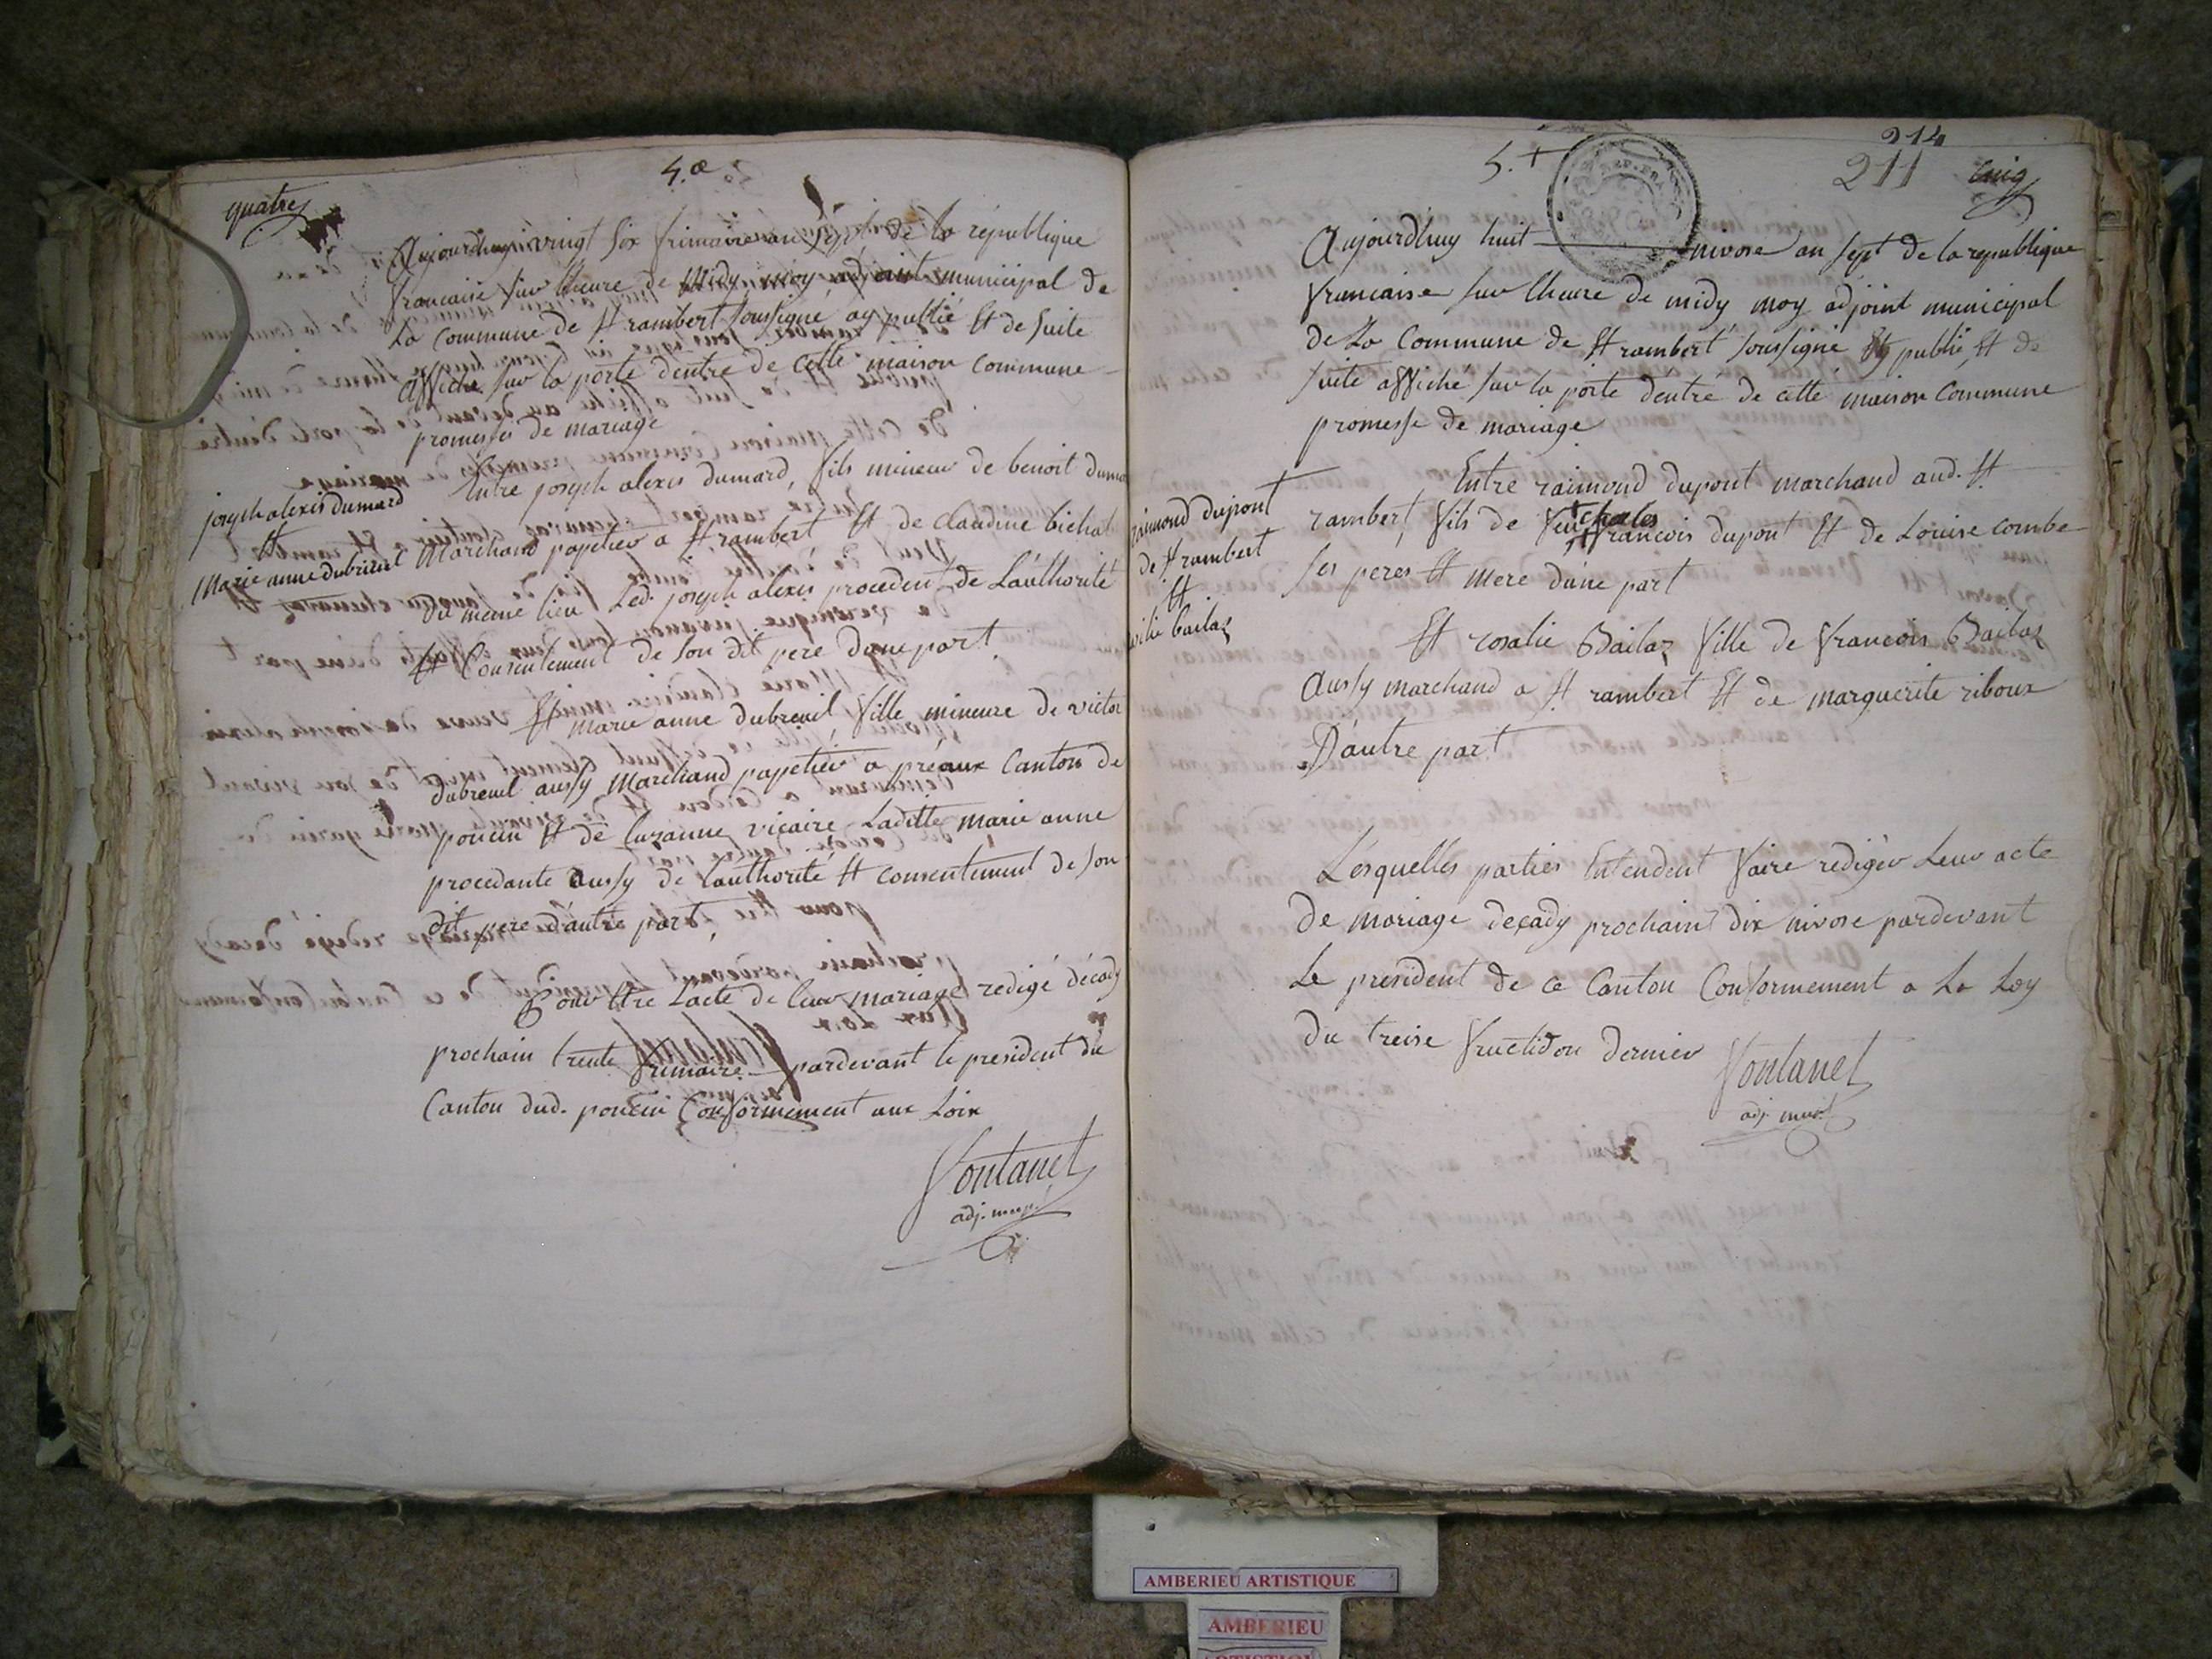 4.a
quatre
Aujourdhuy vingt six frimaire an sept de la république
francaise sur lheure de midy moy adjoint municipal de
la commune de St rambert soussigné ay publié Et de suite
affiché sur la porte dentré de cette maison commune
promesses de mariage
Entre joseph alexis dumard, fils mineur de benoit dumard
joseph alexis dumard
Et
Marie anne dubreuil
Marchand papetier a St rambert Et de claudine bichat
du meme lieu Led. joseph alexis procedent de Lauthorité
Et Consentement de son dit pere dune part
Et marie anne dubreuil fille mineure de victor
dubreuil aussy marchand papetier a préaux Canton de
poncin Et de suzanne vicaire Laditte marie anne
procedante aussy de lauthorité Et consentement de son
dit pere d'autre part
Pour Etre Lacte de leur mariage redigé décady
prochain trente frimaire pardevant le president du
Canton dud. poncin Conformement aux Loix
Fontanel
adj. mupl
5.+
REP. FRA
214
211
cinq
Aujourdhuy huit nivose an sept de la republique
francaise sur lheure de midy moy adjoint municipal
de La Commune de St rambert soussigné ay publié Et de
suite affiché sur la porte dentré de cette maison Commune
promesse de mariage
Entre raimond dupont marchand aud. St
raimond dupont
de St rambert
Et
bailaz
rambert, fils de feu charles
francois dupont Et de Louise combe
ses peres Et mere dune part
Et rosalie Bailaz fille de francois Bailaz
Aussy marchand a St rambert Et de marguerite riboux
D'autre part
Lesquelles parties Entendent faire rediger Leur acte
de mariage decady prochain dix nivose pardevant
Le president de ce Canton Conformement a La Loy
du treise fructidor dernier
Fontanel
adj. mupl
AMBERIEU ARTISTIQUE
AMBERIEU
ARTISTIQUE